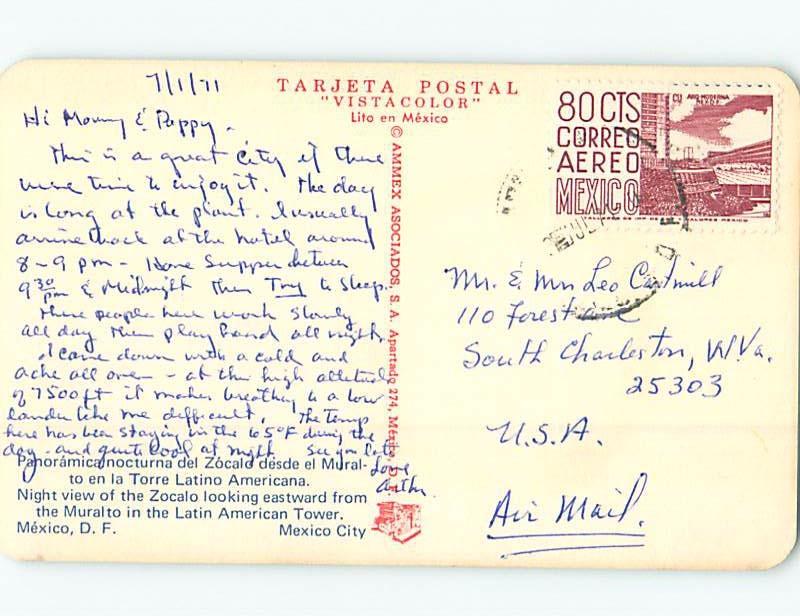 7/1/71
Hi Mommy & Pappy.
This is a great city if there
were time to enjoy it. The day
is long at the plant. I usually
arrive back at the hotel around
8-9 pm - Have supper between
9 30 pm & Midnight then Try to sleep.
These people here work slowly
all day then play hard all night.
I came down with a cold and
ache all over - at this high altitude
of 7500 ft it makes breathing to a low
lander like me difficult. The Temp
here has been staying in the 65°F during the
day - and quite cool at night See you late
Love
Panorámica nocturna del Zócalo desde el Mural-
to en la Torre Latino Americana.
Night view of the Zocalo looking eastward from
the Muralto in the Latin American Tower.
México, D. F. Mexico City
TARJETA POSTAL
"VISTACOLOR"
Lito en México
© AMMEX ASOCIADOS, S. A. Apartado 274, México, D. F.
80 CTS
CORREO
AEREO
MEXICO
CU ARQ MODERNA
MEXICO D F
Mr. & Mrs Leo Cartmill
110 Forest
South Charleston, W. Va.
25303
U.S.A.
Air Mail.